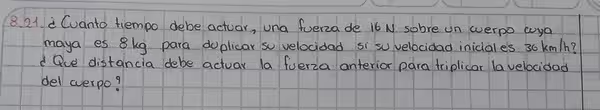 8.21. ¿ Cuánto tiempo debe actuar, una fuerza de 16 N sobre un cuerpo cuya
maya es 8 kg para duplicar su velocidad si su velocidad inicial es 36 km/h?
¿ Que distancia debe actuar la fuerza anterior para triplicar la velocidad
del cuerpo?